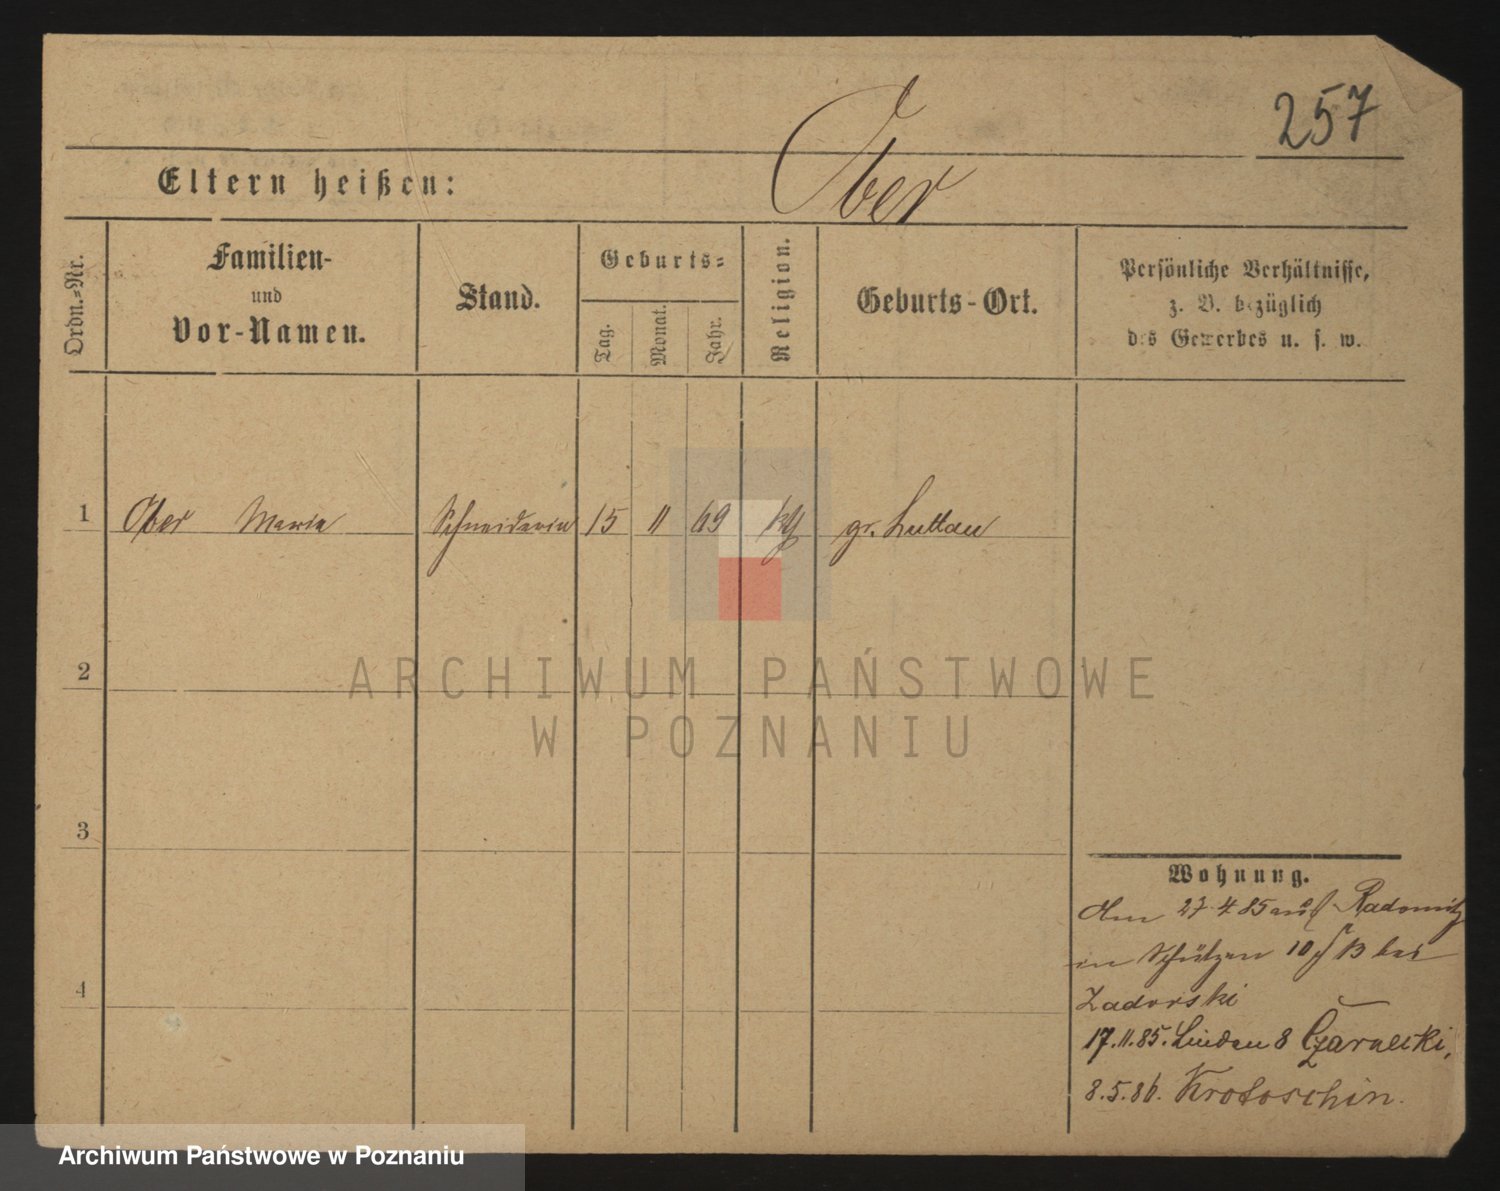 257
Ober
Eltern heißen:
Ordn.-Nr.
Familien-
und
Vor-Namen.
Stand.
Geburts-
Tag.
Monat.
Jahr.
Religion.
Geburts-Ort.
Persönliche Verhältnisse,
z. B. bezüglich
des Gewerbes u. s. w.
1 Ober Maria Schneiderin 15 11 69 gr. Luttau
2
3
4
Wohnung.
27.4.85 auf Radomitz
in Schützen 10 13 bei
Zadorski
17.11.85. Linden 8 Czarnecki,
8.5.86. Krotoschin.
ARCHIWUM PAŃSTWOWE
W POZNANIU
Archiwum Państwowe w Poznaniu